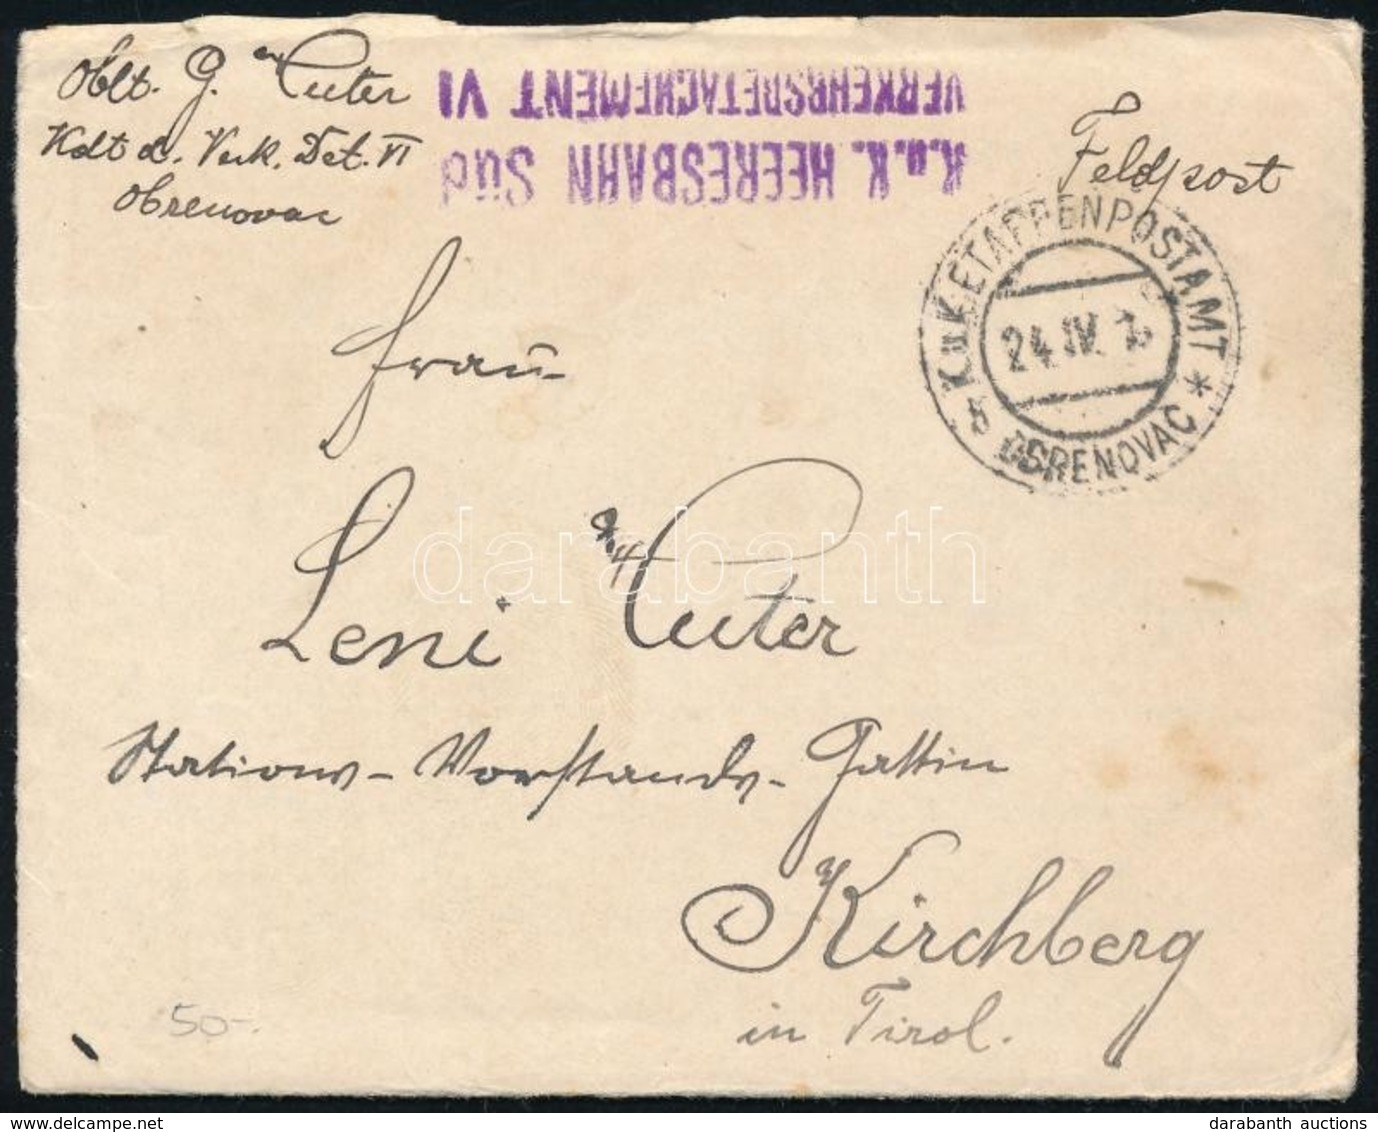 Oblt. G. Reuter
Kdt d. Verk. Det. VI
Obrenovac
K.u.K. HEERESBAHN Süd
VERKEHRSDETACHEMENT VI
Feldpost
K.u.K. ETAPPENPOSTAMT
24. IV.
OBRENOVAC
Frau
Leni Reuter
Stations-Vorstands-Gattin
Kirchberg
in Tirol.
50-.
darabanth
darabanth auctions